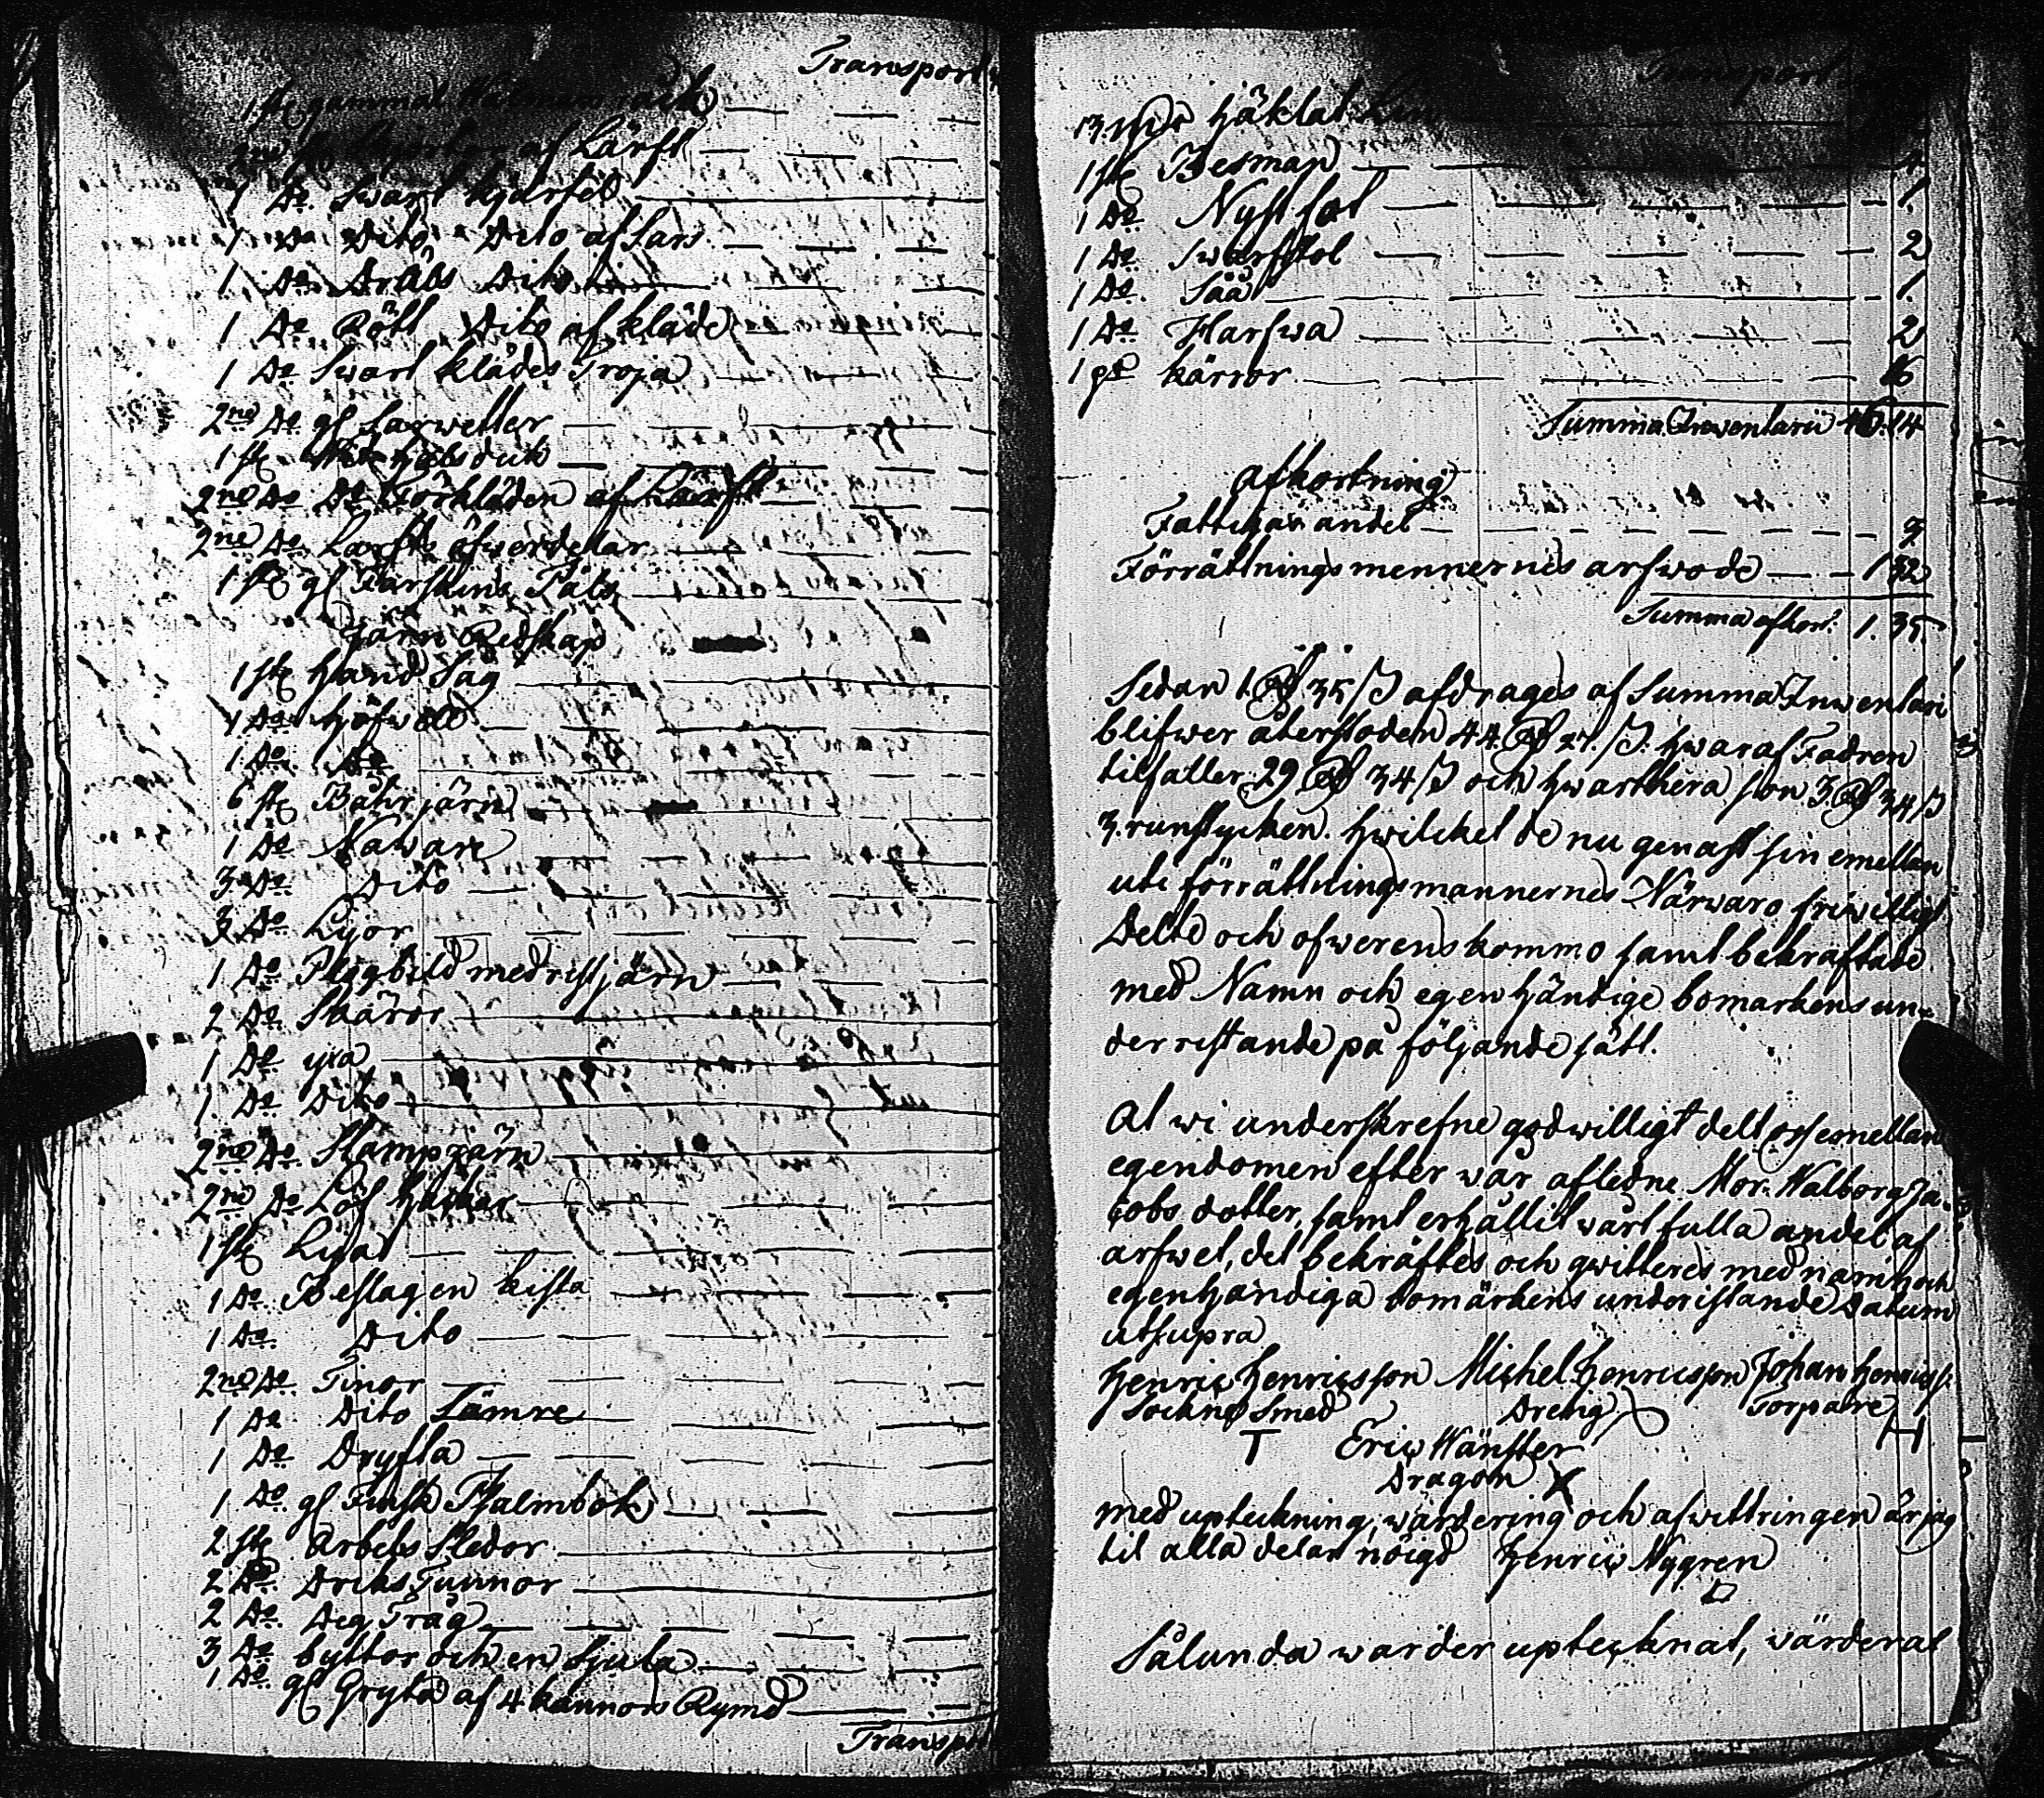 Transport
1 st gammal Wallmans rock
2ne st af Lärft
1 Do Swart kjortel
1 Do Dito Dito af Sars
1 Do Dräls Dito
1 Do Rött Dito af kläde
1 Do Swart klädes Tröja
2ne Do gl Sarwetter
1 st halsduk
2ne Do Do Förkläden af Lärft
2ne Do Lärfts öfwerdelar
1 st gl Fårskins Päls
Järn Redskap
1 st hand Såg
1 Do höfwell
1 Do Do
6 st Båhrjärn
1 Do Naware
3 Do Dito
3 Do Lijor
1 Do Plogbild med ristjärn
2 Do Skäror
1 Do yxa
1. Do Dito
2ne Do Stampjärn
2ne Do Löf hackor
1 st Lijа
1 Do Beslagen kista
1 Do Dito
2ne Do Tinor
1 Do Dito Sämre
1 Do Dryfta
1 Do gl Finsk Psalmbok
2 st Arbets Sledor
2 Do Driks Tunnor
2 Do Deg Tråg
3 Do byttor och en Skjula
1 Do gl Gryta af 4 kannors Rymd
Transp
Transport
13 häklat
1 st Besman 4
1 Do Nystfot 1
1 Do Swarfstol 2
1 Do Såå 1.
1 Do Harfwa 2
1 pr kärror 16
Summa Inventarii 46.14
Afkortning
Fattigas andel 3
Förrättningsmennernes arfwode 1 32
Summa afkort. 1. 35.
Sedan 1 Rd 35 s afdrages af Summa Inwentari
blifwer återstoden 44. Rd 27. s. hwaraf Fadren
tilfaller 29 Rd 34 s och hwarthera son 3. Rd 34 s
3. runstycken. hwilcket de nu genast sin emellan
uti förrättningsmannernes Närwaro friwilligt
Delte och ofwerenskommo samt bekräftade
med Namn och egenhändige bomärkens un-
derristande på följande sätt.
At wi underskrefne godwilligt delt oss emellan
egendomen efter wår afledne Mor Walborg Ja-
cobs dotter, samt erhållit wårt fulla andel af
arfwet, det bekräftes och qwitteres med namn och
egenhändiga bomärkens underistande Datum
utsupra
Henric Henricsson Michel Henricsson Johan Henricss.
Sockne Smed Dreng Torpare
T Eric Wänster H
Dragon X
med upteckning, wärdering och afwittringen är jag
til alla delar nöigd Henric Nygren
Sålunda warder uptecknat, wärderat